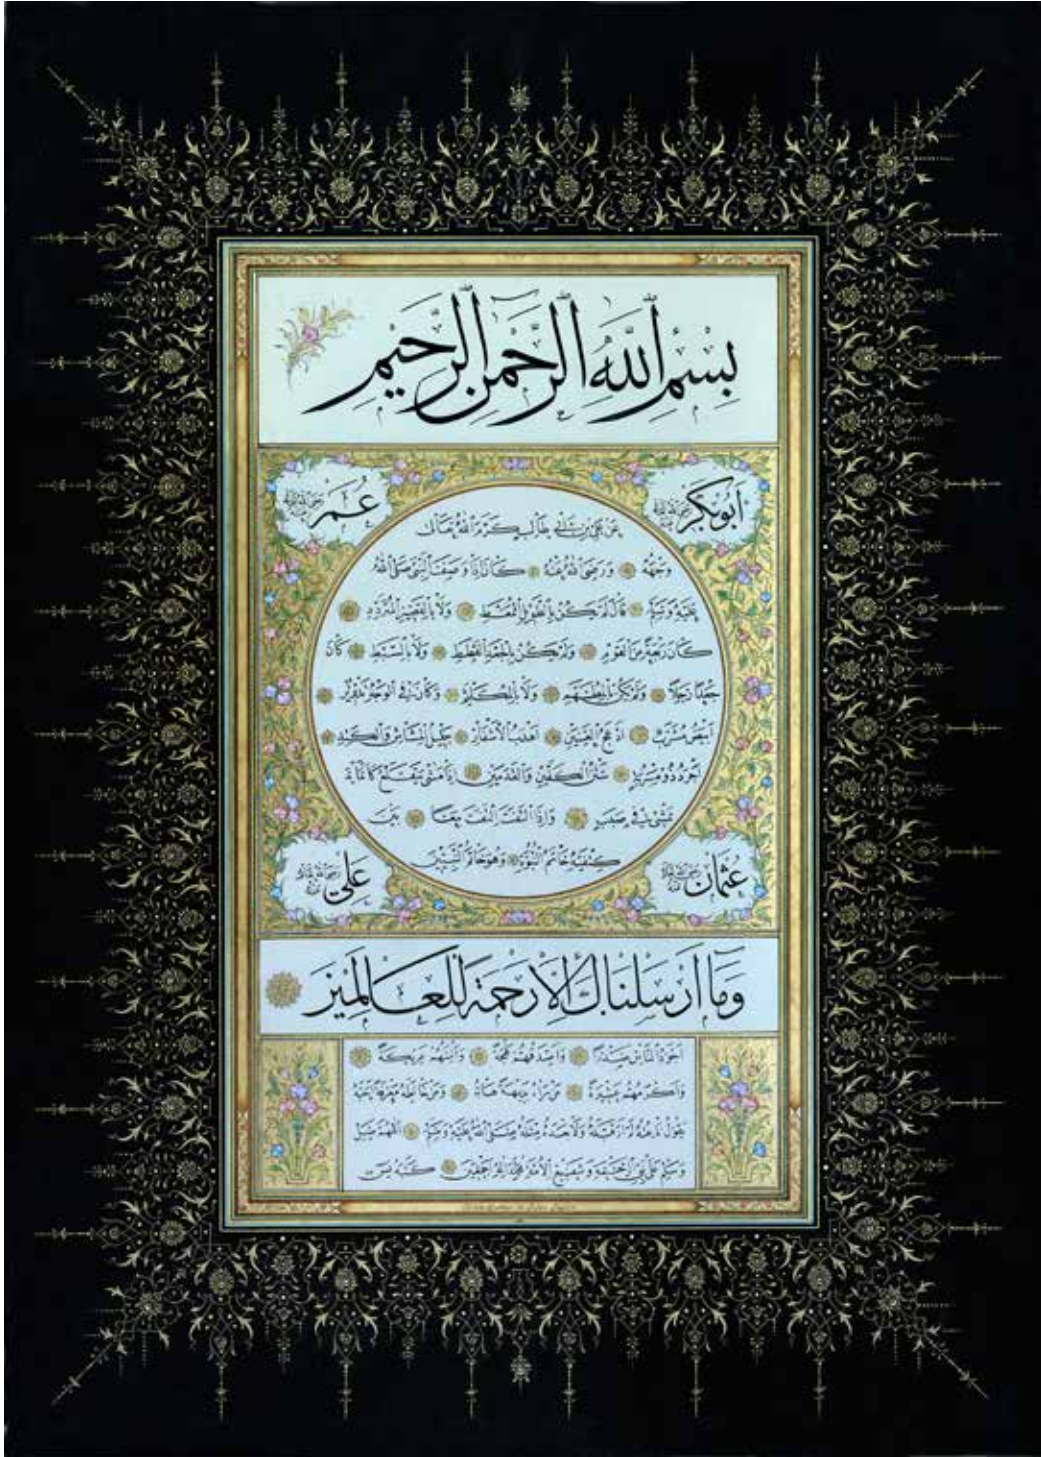 بِسْمِ اللّٰهِ الرَّحْمٰنِ الرَّحِيْمِ
اَبُو بَكَرْ رضى الله تعالى عنه
عُمَرْ رضى الله تعالى عنه
عَنْ عَلِىِّ بْنِ اَبِى طَالِبٍ كَرَّمَ اللّٰهُ تَعَالٰى
وَجْهَهُ وَرَضِىَ اللّٰهُ عَنْهُ كَانَ اِذَا وَصَفَ النَّبِىَّ صَلَّى اللّٰهُ
عَلَيْهِ وَسَلَّمَ قَالَ لَمْ يَكُنْ بِالطَّوِيلِ الْمُمَّغِطِ وَلَا بِالْقَصِيرِ الْمُتَرَدِّدِ
كَانَ رَبْعَةً مِنَ الْقَوْمِ وَلَمْ يَكُنْ بِالْجَعْدِ الْقَطَطِ وَلَا بِالسَّبِطِ كَانَ
جَعْدًا رَجِلًا وَلَمْ يَكُنْ بِالْمُطَهَّمِ وَلَا بِالْمُكَلْثَمِ وَكَانَ فِى الْوَجْهِ تَدْوِيرٌ
اَبْيَضُ مُشْرَبٌ اَدْعَجُ الْعَيْنَيْنِ اَهْدَبُ الْاَشْفَارِ جَلِيلُ الْمُشَاشِ وَالْكَتَدِ
اَجْرَدُ ذُو مَسْرُبَةٍ شَثْنُ الْكَفَّيْنِ وَالْقَدَمَيْنِ اِذَا مَشٰى يَتَقَلَّعُ كَاَنَّمَا
يَمْشِى فِى صَبَبٍ وَاِذَا الْتَفَتَ الْتَفَتَ مَعًا بَيْنَ
كِتْفَيْهِ خَاتَمُ النُّبُوَّةِ وَهُوَ خَاتَمُ النَّبِيِّينَ
عُثْمَان رضى الله تعالى عنه
عَلِى رضى الله تعالى عنه
وَمَا اَرْسَلْنَاكَ اِلَّا رَحْمَةً لِلْعَالَمِينَ
اَجْوَدُ النَّاسِ صَدْرًا وَاَصْدَقُهُمْ لَهْجَةً وَاَلْيَنُهُمْ عَرِيكَةً
وَاَكْرَمُهُمْ عَشِيرَةً مَنْ رَآهُ بَدِيهَةً هَابَهُ وَمَنْ خَالَطَهُ مَعْرِفَةً اَحَبَّهُ
يَقُولُ نَاعِتُهُ لَمْ اَرَ قَبْلَهُ وَلَا بَعْدَهُ مِثْلَهُ صَلَّى اللّٰهُ عَلَيْهِ وَسَلَّمَ اَللّٰهُمَّ صَلِّ
وَسَلِّمْ عَلٰى نَبِىِّ وَشَفِيعِ الْاُمَّةِ مُحَمَّدٍ وَآلِهِ اَجْمَعِينَ كَتَبَهُ